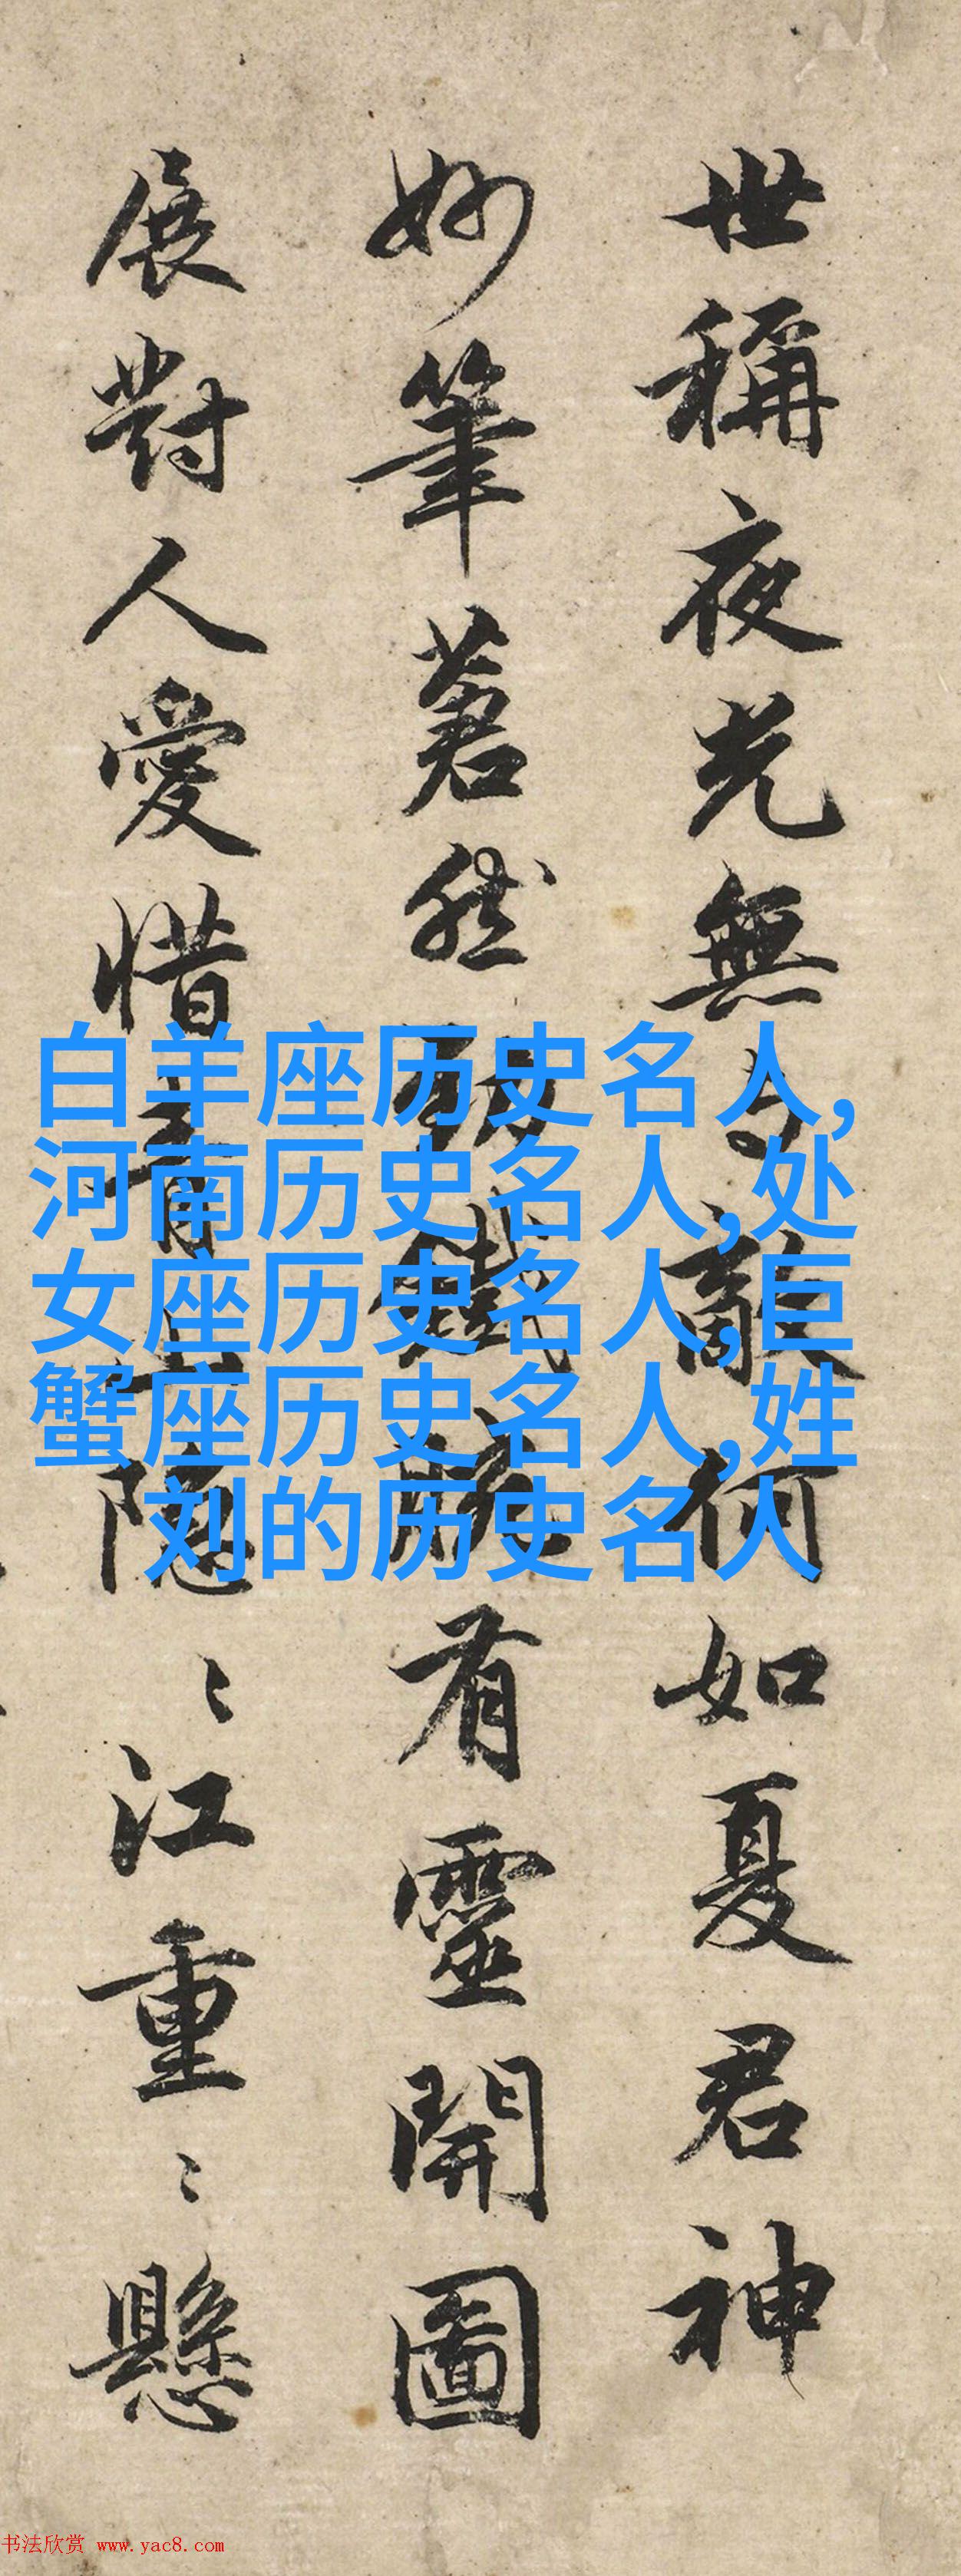 世稱夜光無与敵何如夏君神
妙筆然有靈開圖
展對人愛惜青山隱〻江重〻懸
白羊座历史名人,
河南历史名人,处
女座历史名人,巨
蟹座历史名人,姓
刘的历史名人
书法欣赏 www.yac8.com